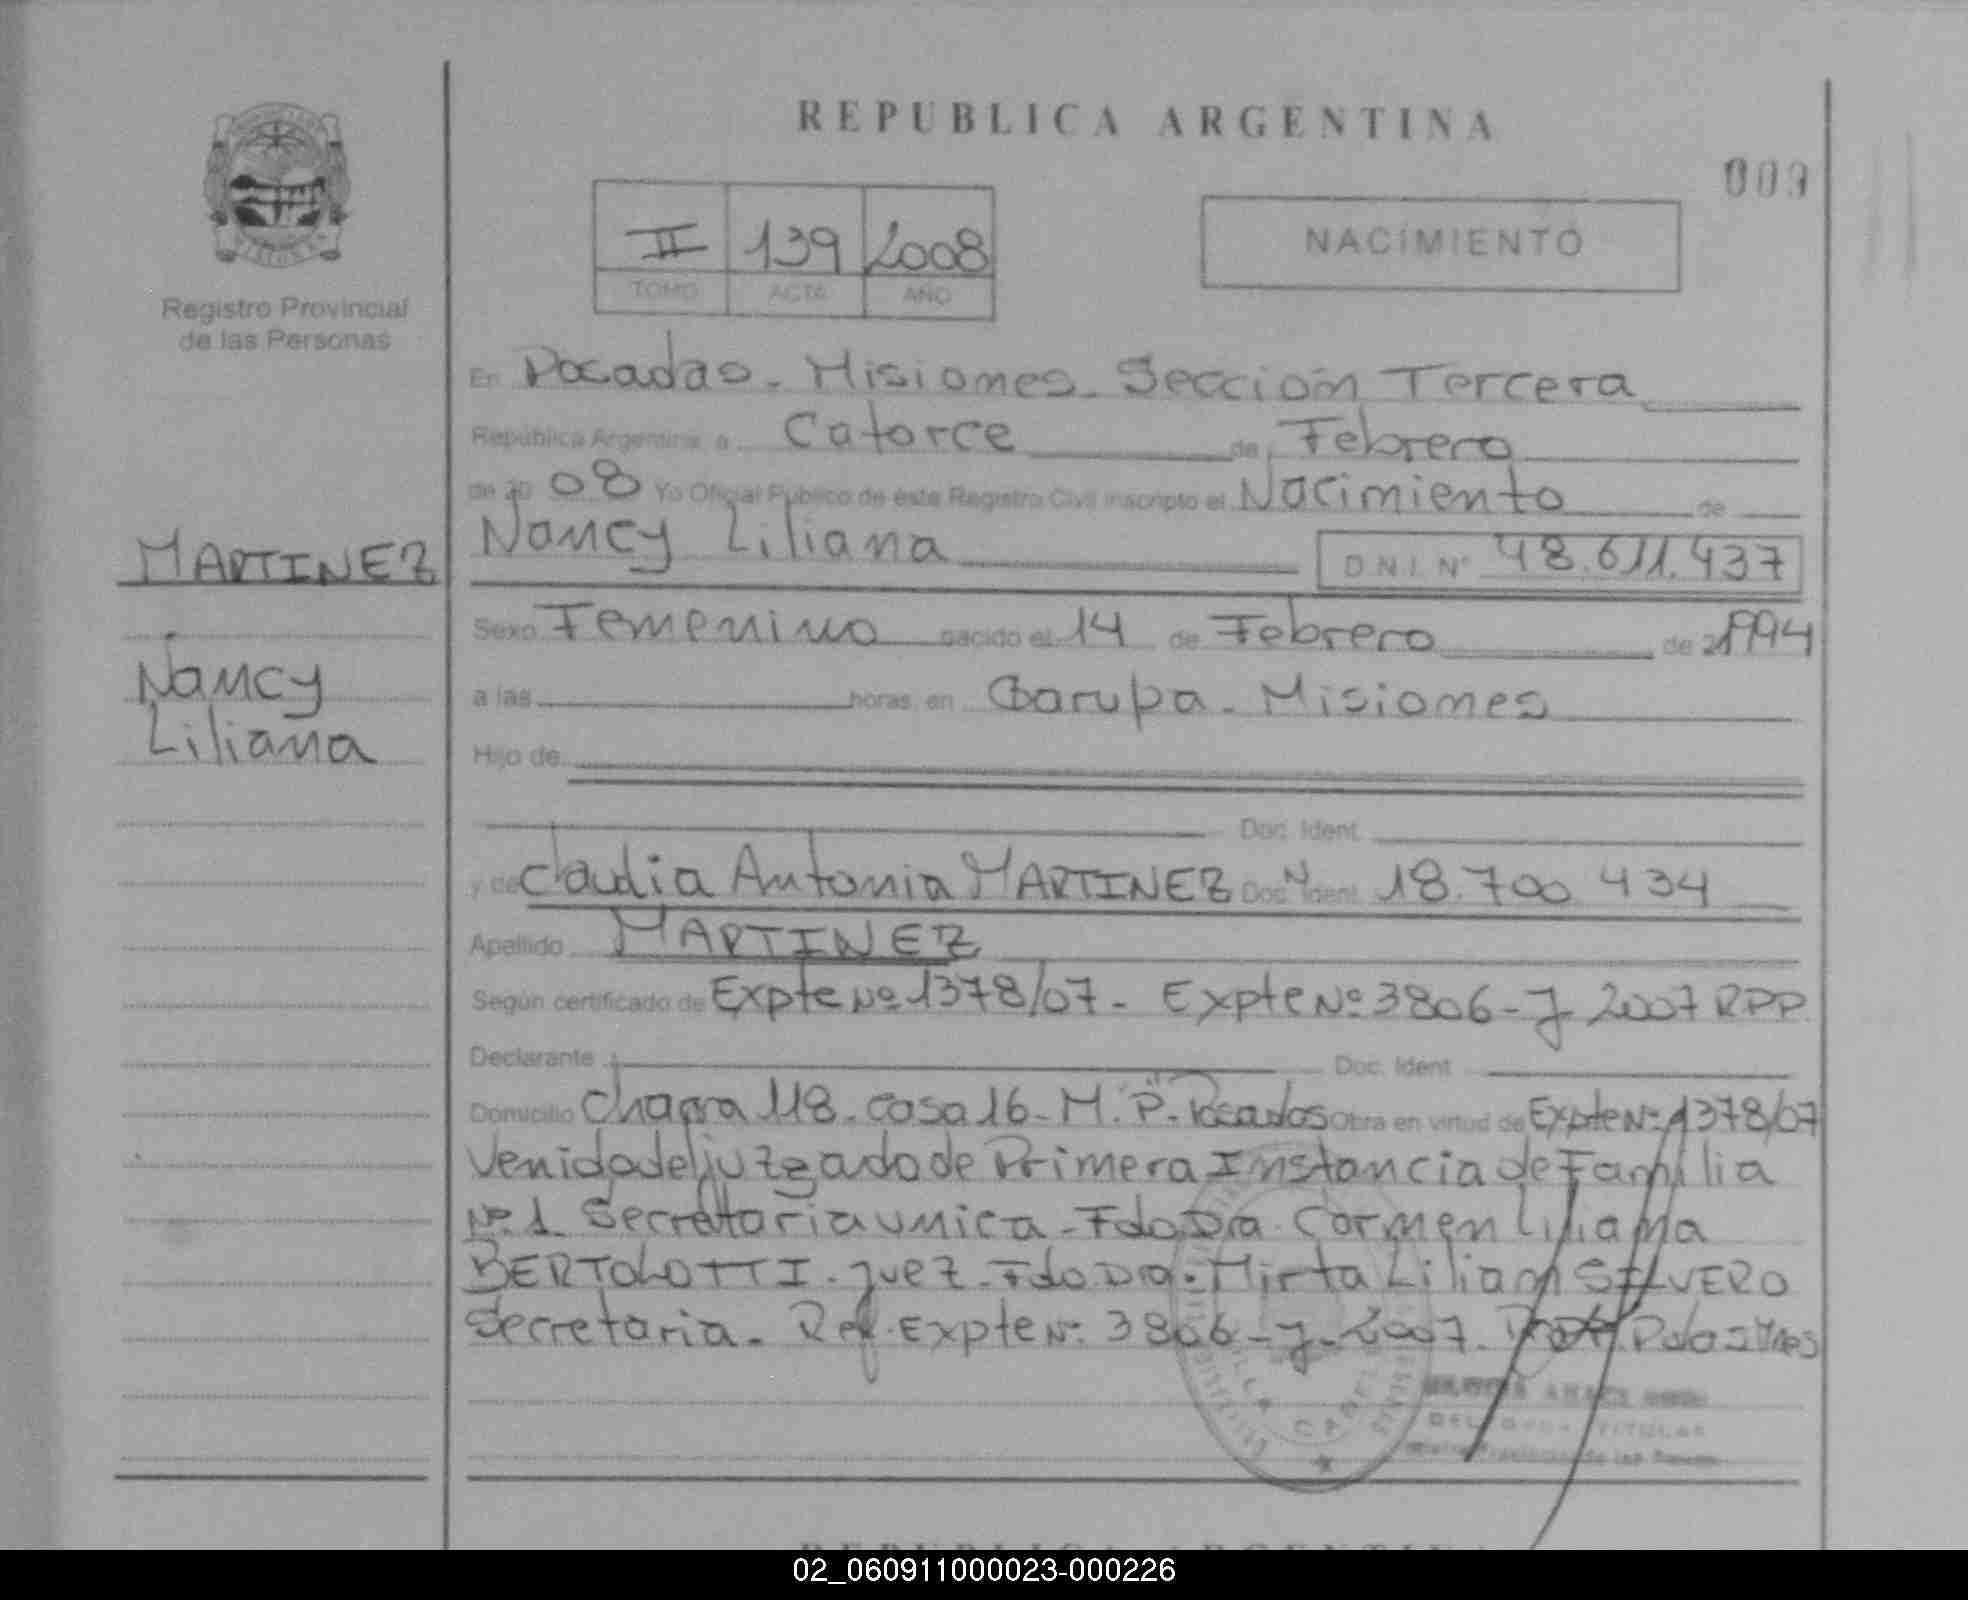 REPUBLICA ARGENTINA
009
II 139 2008
TOMO ACTA AÑO
NACIMIENTO
Registro Provincial
de las Personas
En Posadas - Misiones - Sección Tercera
República Argentina, a Catorce de Febrero
de 20 08 Yo Oficial Público de éste Registro Civil inscripto el Nacimiento de
MARTINEZ
Nancy Liliana D.N.I. Nº 48.611.437
Sexo Femenino nacido el 14 de Febrero de 1994
Nancy
Liliana
a las horas, en Garupa - Misiones
Hijo de
Doc. Ident.
y de Claudia Antonia MARTINEZ Doc. Ident. 18.700.434
Apellido MARTINEZ
Según certificado de Expte Nº 1378/07 - Expte Nº 3806-J-2007 RPP.
Declarante Doc. Ident.
Domicilio Chacra 118 - casa 16 - M. "P" - Posadas Obra en virtud de Expte Nº 1378/07
Venido del juzgado de Primera Instancia de Familia
Nº 1 Secretaria unica - Fdo Dra. Carmen Liliana
BERTOLOTTI - juez - Fdo Dra. Mirta Lilian SILVERO
Secretaria - Ref. Expte Nº 3806-J-2007.
DELEGADA TITULAR
02_060911000023-000226